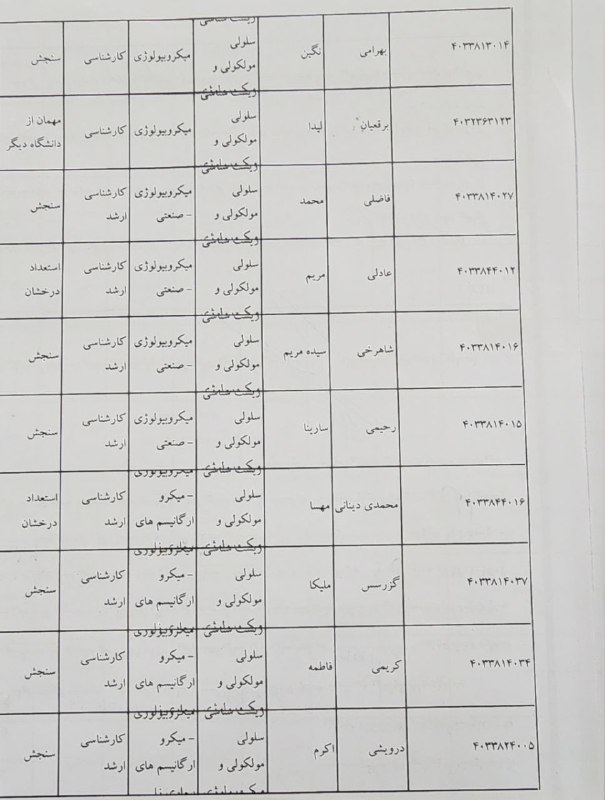 ۴۰۳۳۸۱۳۰۱۴ بهرامی نگین سلولی مولکولی و میکروبیولوژی کارشناسی سنجش
۴۰۳۲۳۶۳۱۲۳ برقعیان لیدا سلولی مولکولی و میکروبیولوژی کارشناسی مهمان از دانشگاه دیگر
۴۰۳۳۸۱۴۰۲۷ فاضلی محمد سلولی مولکولی و میکروبیولوژی - صنعتی کارشناسی ارشد سنجش
۴۰۳۳۸۴۴۰۱۲ عادلی مریم سلولی مولکولی و میکروبیولوژی - صنعتی کارشناسی ارشد استعداد درخشان
۴۰۳۳۸۱۴۰۱۶ شاهرخی سیده مریم سلولی مولکولی و میکروبیولوژی - صنعتی کارشناسی ارشد سنجش
۴۰۳۳۸۱۴۰۱۵ رحیمی سارینا سلولی مولکولی و میکروبیولوژی - صنعتی کارشناسی ارشد سنجش
۴۰۳۳۸۴۴۰۱۶ محمدی دینانی مهسا سلولی مولکولی و میکروبیولوژی - میکرو ارگانیسم های کارشناسی ارشد استعداد درخشان
۴۰۳۳۸۱۴۰۳۷ گزرسس ملیکا سلولی مولکولی و میکروبیولوژی - میکرو ارگانیسم های کارشناسی ارشد سنجش
۴۰۳۳۸۱۴۰۳۴ کریمی فاطمه سلولی مولکولی و میکروبیولوژی - میکرو ارگانیسم های کارشناسی ارشد سنجش
۴۰۳۳۸۲۴۰۰۵ درویشی اکرم سلولی مولکولی و میکروبیولوژی - میکرو ارگانیسم های کارشناسی ارشد سنجش